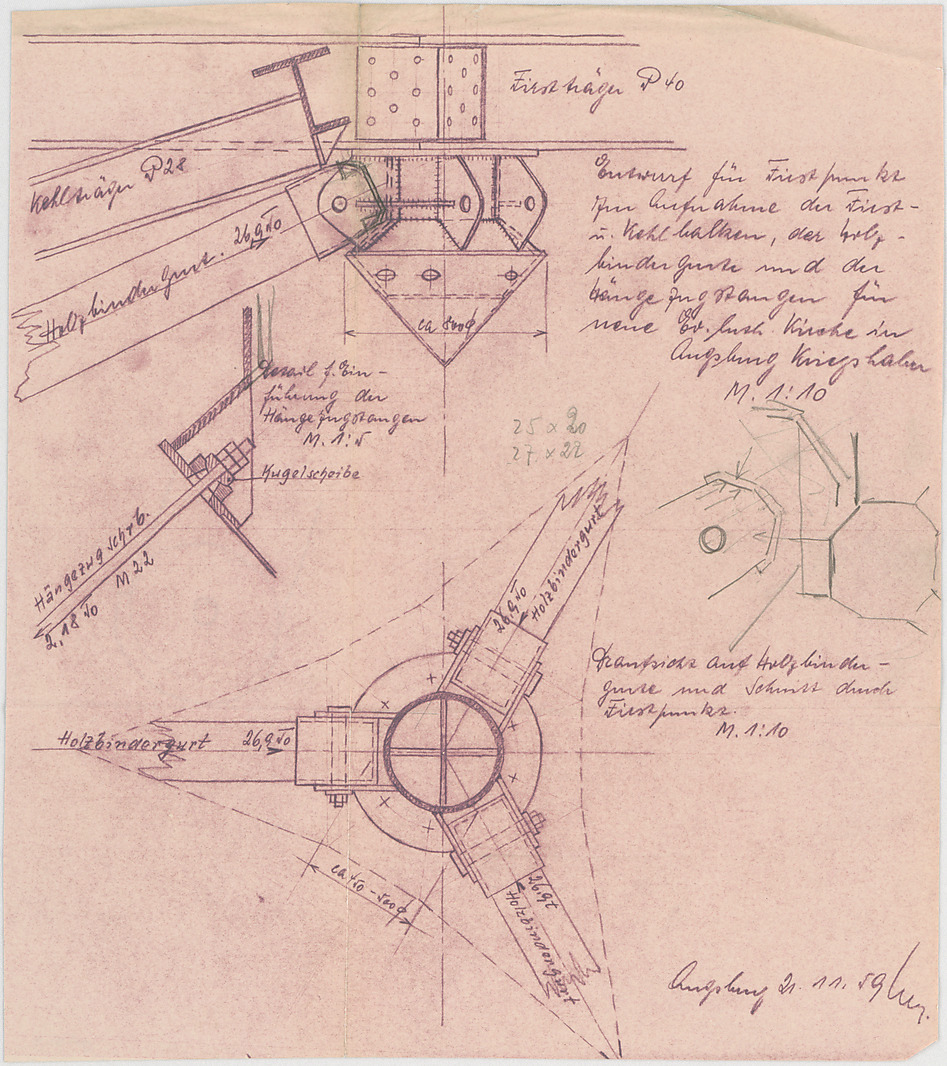 Firstträger P 40
Kehlträger P 28
Holzbindergurt. 26,9 to
Entwurf für Firstpunkt
zur Aufnahme der First-
u. Kehlbalken, der Holz-
bindergurte und der
Hängezugstangen für
neue Ev. luth. Kirche in
Augsburg Kriegshaber
M. 1:10
ca 800 ϕ
Detail f. Ein-
führung der
Hängezugstangen
M. 1:5
Kugelscheibe
25 x 20
27 x 22
Hängezugschrb.
M 22
2,18 to
Holzbindergurt
26,9 to
Draufsicht auf Holzbinder-
gurte und Schnitt durch
Firstpunkt.
M. 1:10
Holzbindergurt 26,9 to
ca 450 - 500 ϕ
26,9 t
Holzbindergurt
Augsburg 21. 11. 59